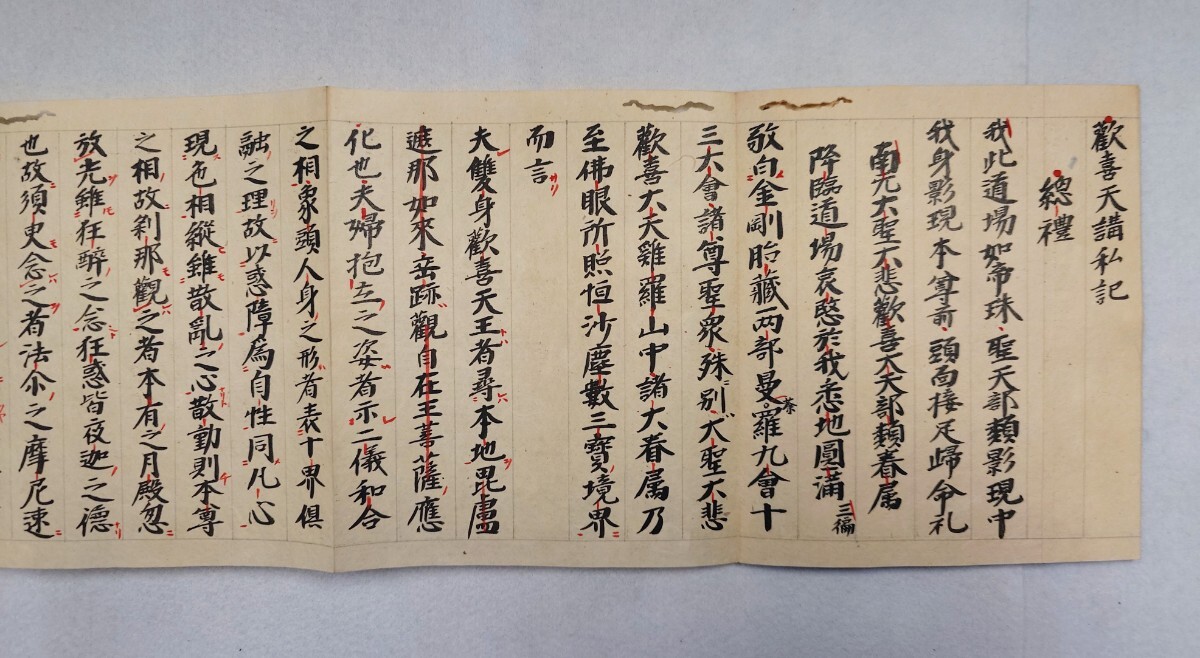 歡喜天講私記
總禮
我此道場如帝珠聖天部類影現中
我身影現本尊前頭面接足歸命礼
南无大聖大悲歡喜大天部類眷属
降臨道場哀愍於我悉地圓滿 三徧
敬白金剛胎蔵兩部曼茶羅九會十
三大會諸尊聖衆殊別大聖大悲
歡喜大天雞羅山中諸大眷属乃
至佛眼所照恒沙塵數三寳境界ニ
而言 サク
夫雙身歡喜天王者尋本地毘盧
遮那如來垂跡觀自在王菩薩應
化也夫婦抱立之姿者示二儀和合
之相象頭人身之形者表十界俱
融之理故以惑障為自性同凡心
現色相縱雖散亂之心散動則本尊
之相故刹那觀之者本有之月殿忽
放光雖狂醉之念狂惑皆夜迦之德
也故須臾念之者法尒之摩尼速